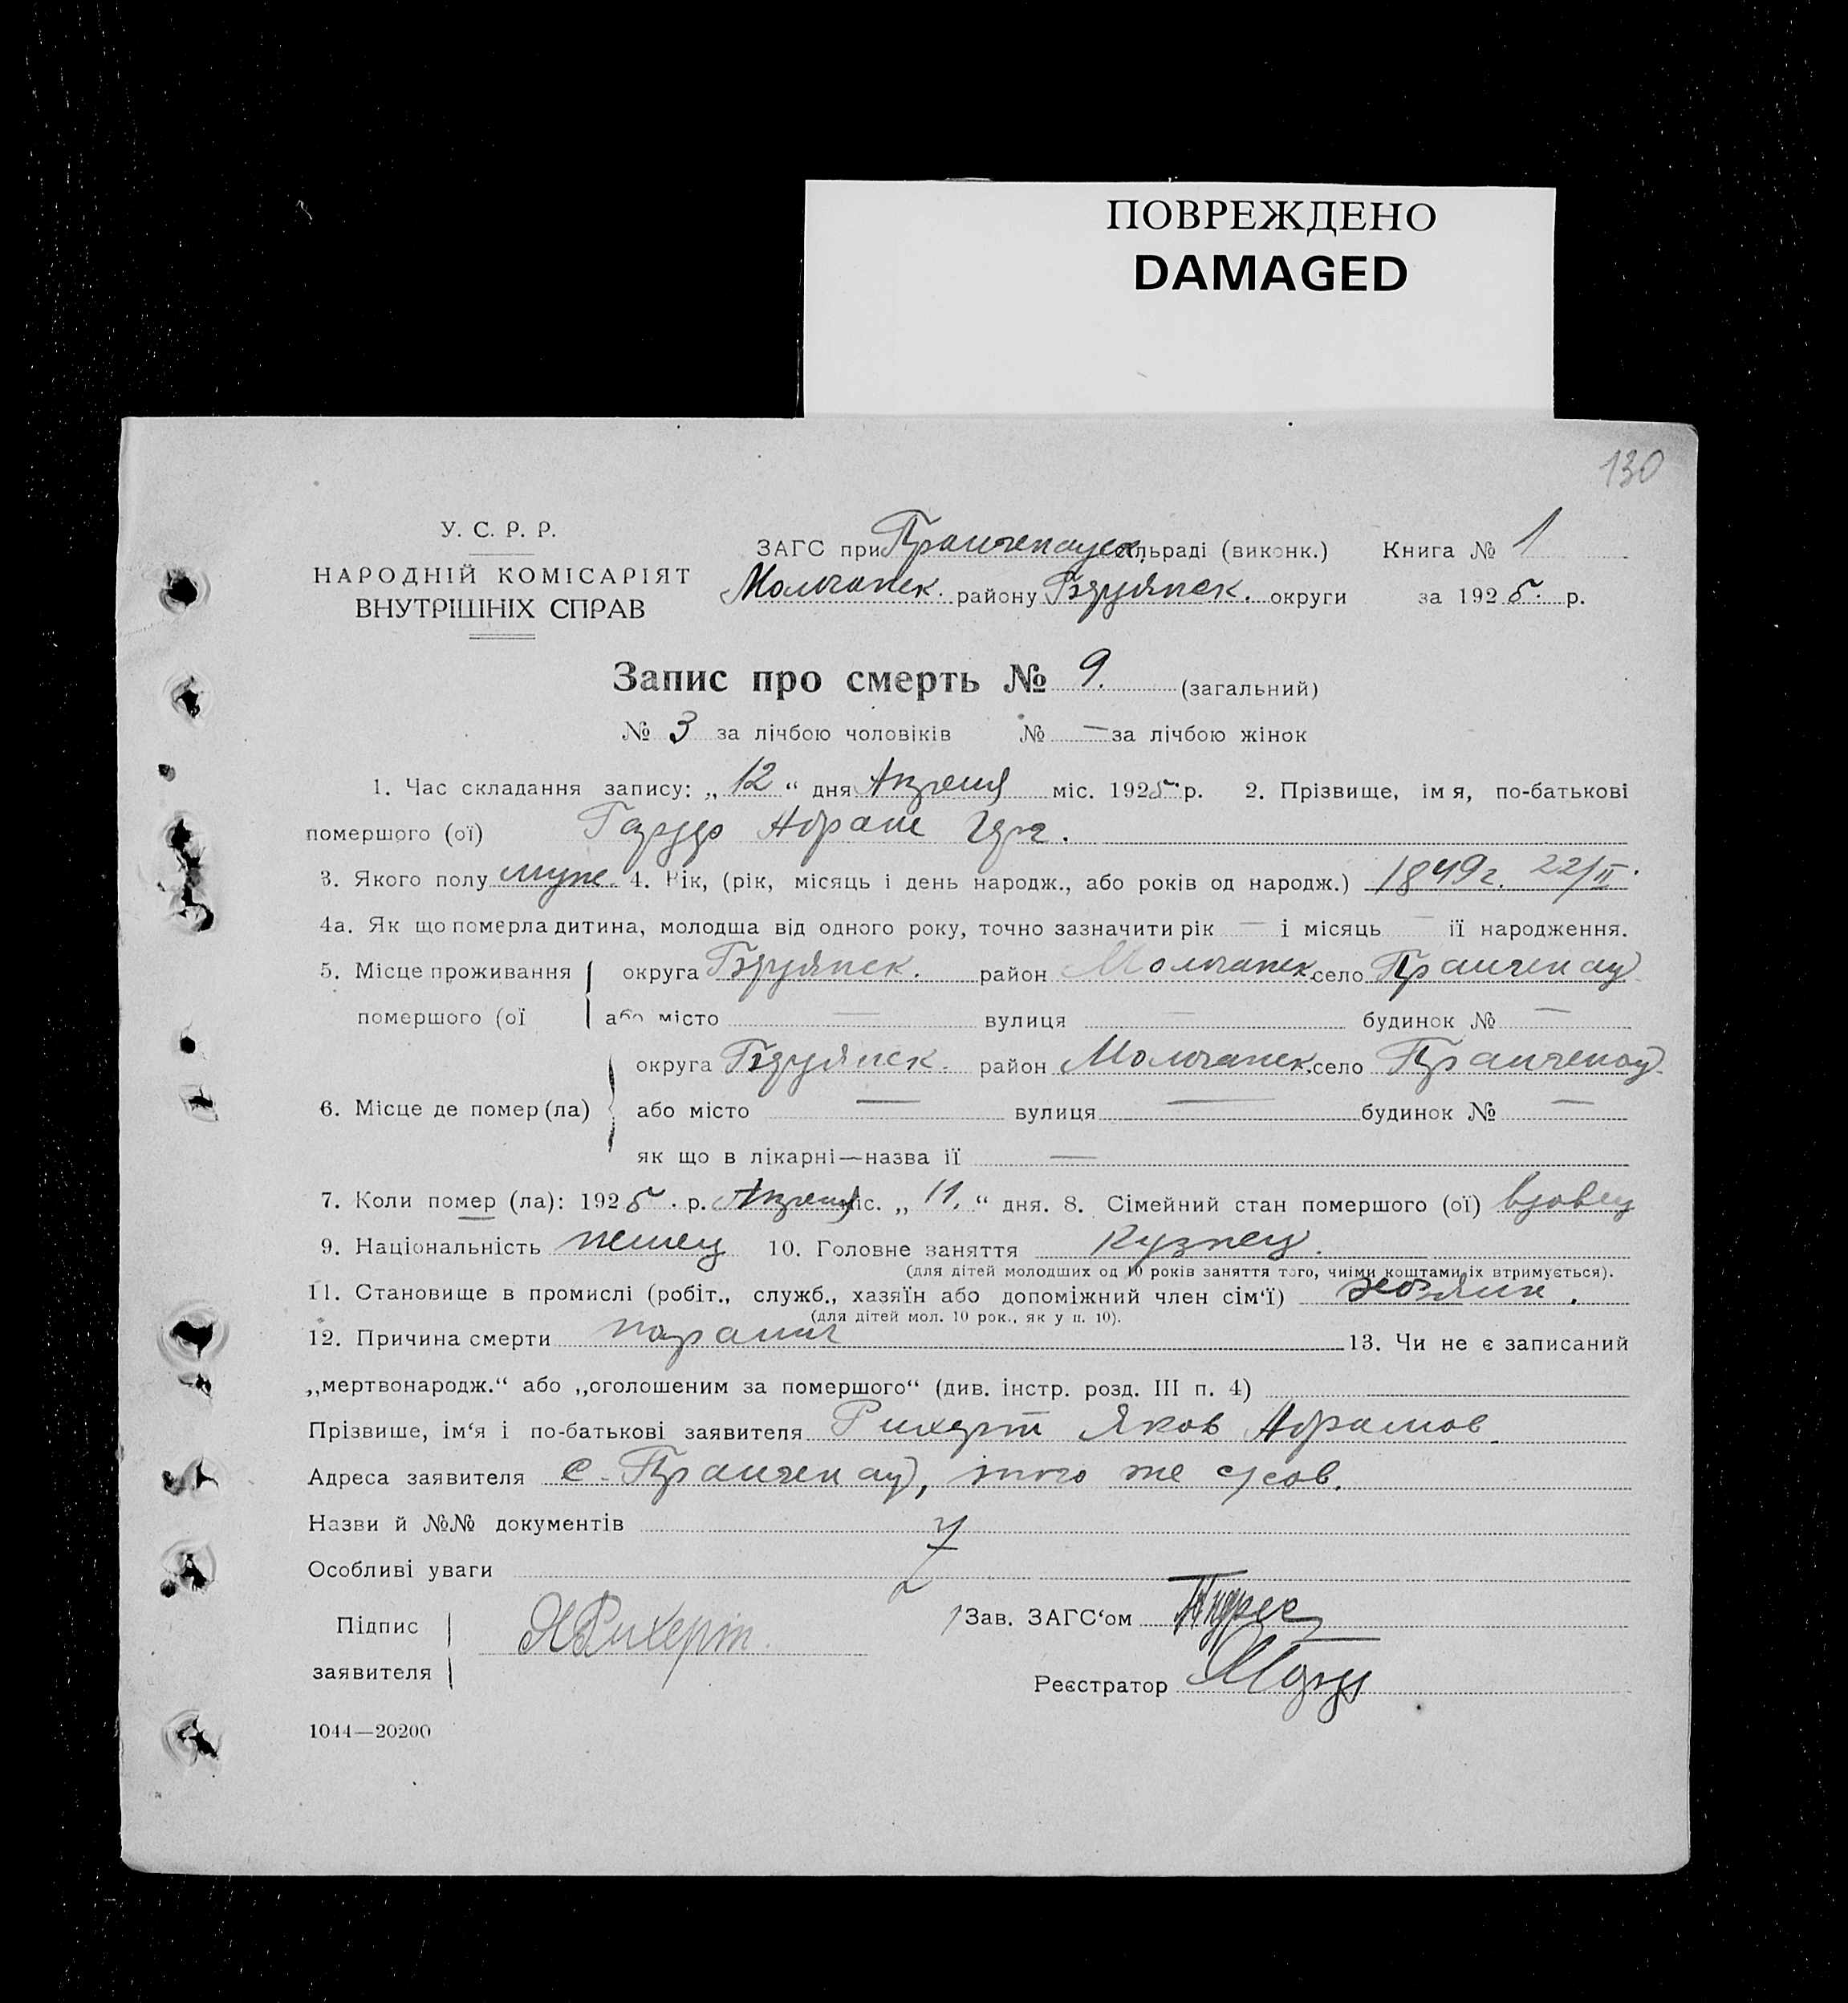 ПОВРЕЖДЕНО
DAMAGED
130
У. С. Р. Р.
НАРОДНІЙ КОМІСАРІЯТ
ВНУТРІШНІХ СПРАВ
ЗАГС при сільраді (виконк.) Книга № 1
Молочанск. району Бердянск. округи за 1925 р.
Запис про смерть № 9. (загальний)
№ 3 за лічбою чоловіків № — за лічбою жінок
1. Час складання запису: „ 12 “ дня Апреля міс. 1925 р. 2. Прізвище, імя, по-батькові
помершого (ої) Абрам
3. Якого полу муж. 4. Вік, (рік, місяць і день народж., або років од народж.) 1849 г. 22/II.
4а. Як що померла дитина, молодша від одного року, точно зазначити рік — і місяць — її народження.
5. Місце проживання помершого (ої округа Бердянск. район Молочанск. село
або місто — вулиця — будинок № —
6. Місце де помер (ла) округа Бердянск. район Молочанск. село
або місто — вулиця — будинок № —
як що в лікарні—назва її —
7. Коли помер (ла): 1925 . р. Апреля міс. „ 11. “ дня. 8. Сімейний стан помершого (ої) вдовец
9. Національність немец 10. Головне заняття Кузнец.
(для дітей молодших од 10 років заняття того, чиїми коштами їх втримується).
11. Становище в промислі (робіт., служб., хазяїн або допоміжний член сім‘ї) хозяин.
(для дітей мол. 10 рок., як у п. 10).
12. Причина смерти паралич 13. Чи не є записаний
„мертвонародж.“ або „оголошеним за помершого“ (див. інстр. розд. III п. 4)
Прізвише, ім‘я і по-батькові заявителя Рихерт Яков Абрамов.
Адреса заявителя с. того же сусов.
Назви й №№ документів
Особливі уваги
Підпис
заявителя ЯРихерт.
Зав. ЗАГС‘ом
Реєстратор
1044—20200